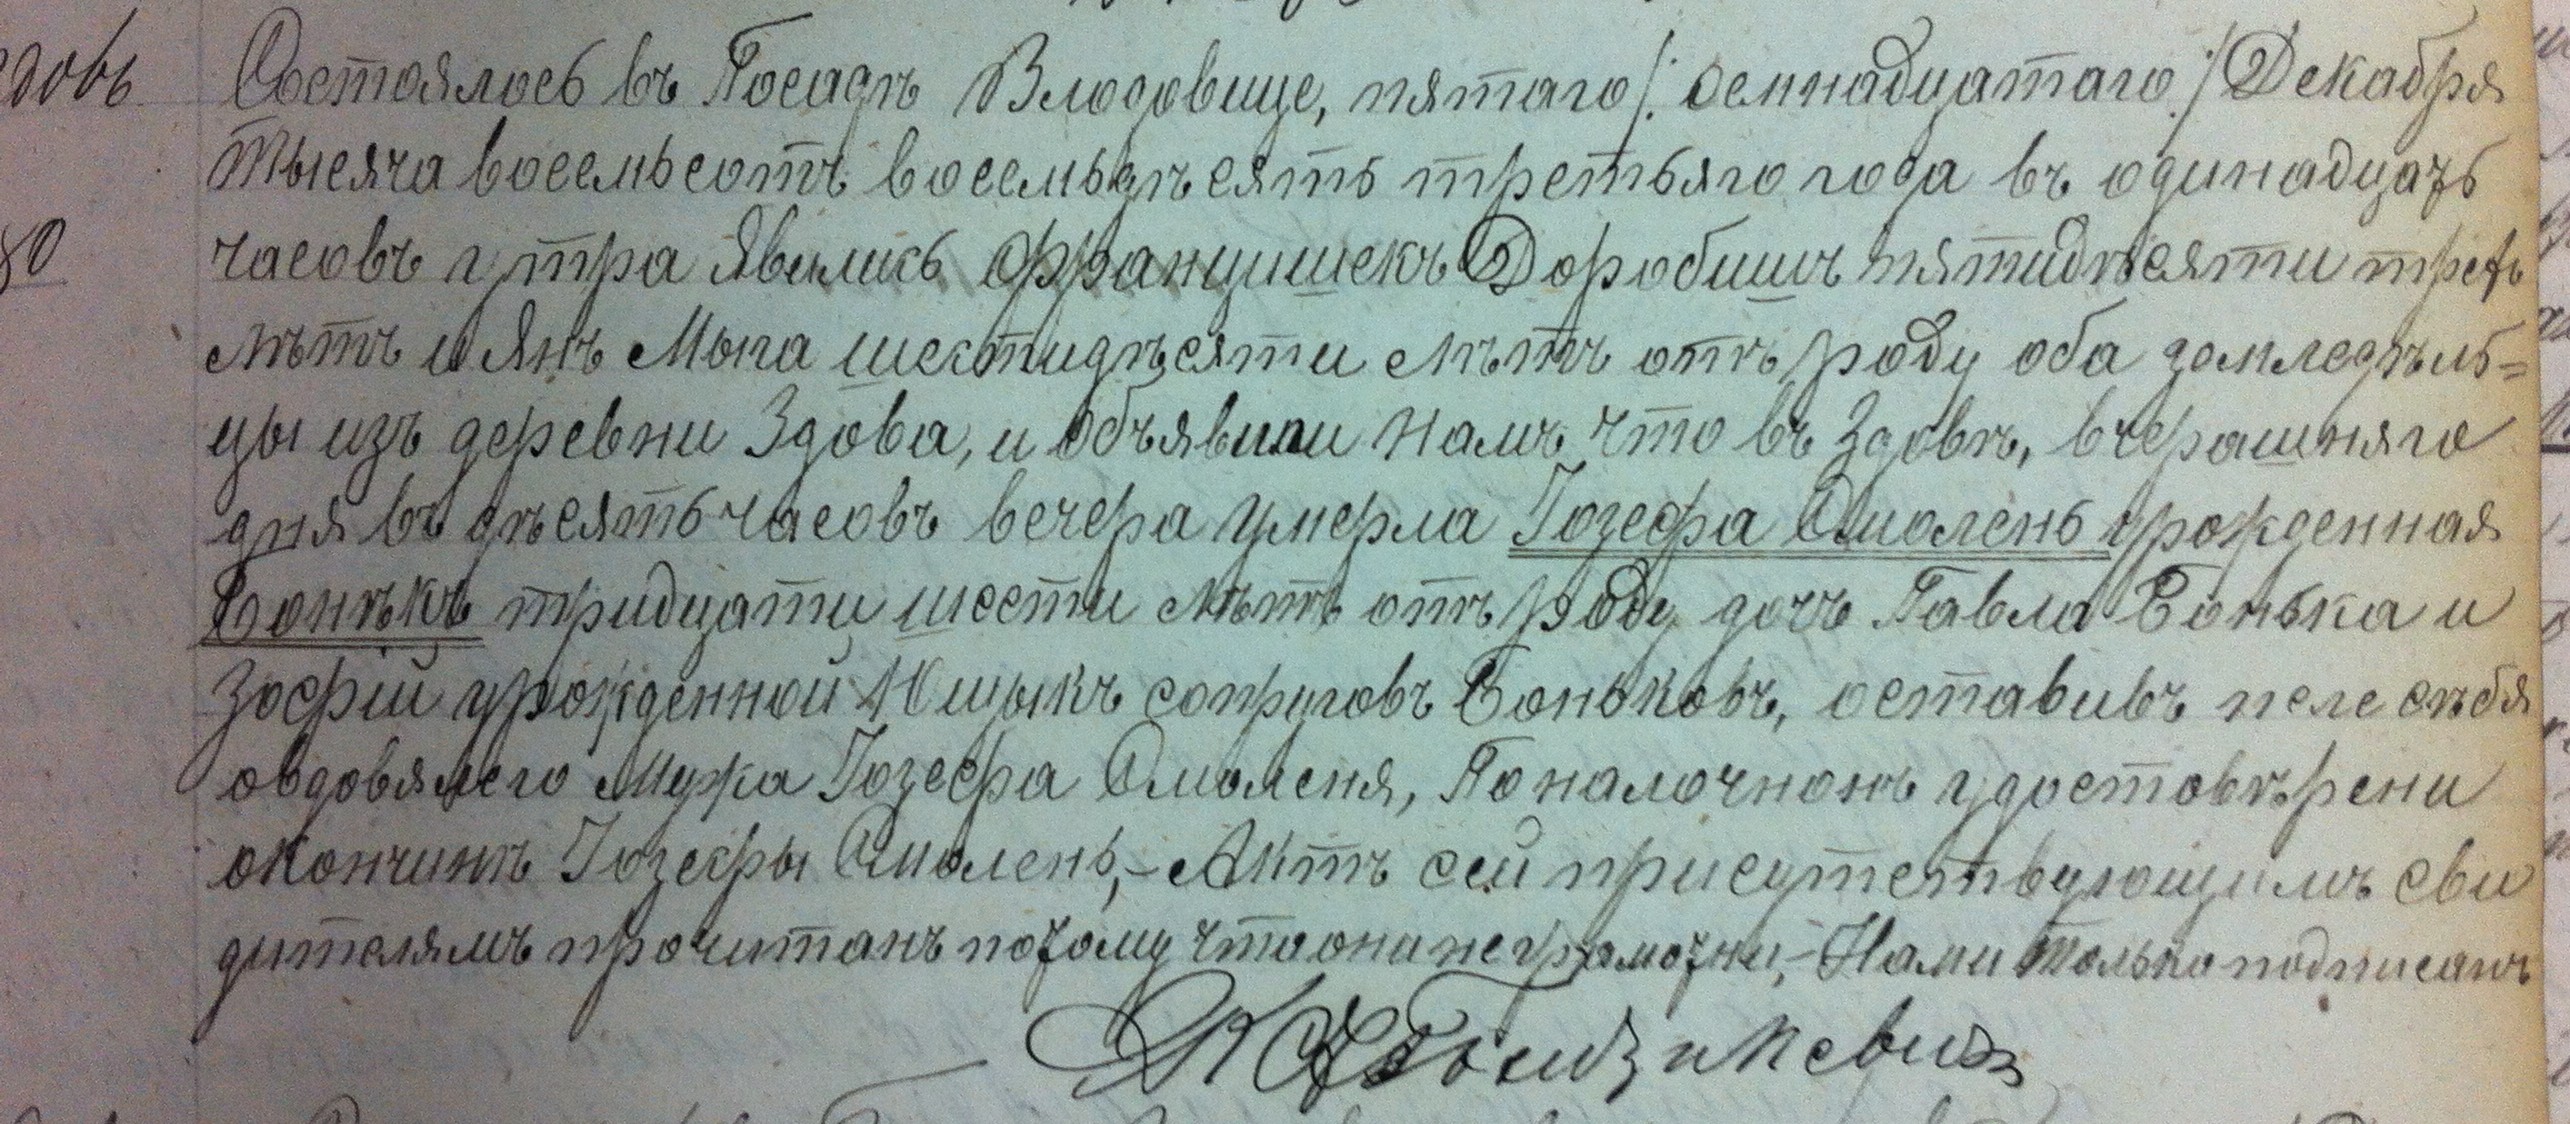 Состоялось въ Посадѣ Влодовице, пятаго /: семнадцатаго :/ Декабря
тысяча восемьсотъ восемьдѣсять третьяго года въ одинадцать
80 часовъ утра явились Францишекъ Доробишъ пятидѣсяти трехъ
лѣтъ и Янъ Мыга шестидѣсяти лѣтъ отъ роду оба земледѣль=
цы изъ деревни Здова, и объявили намъ что въ Здовѣ, вчерашняго
дня въ дѣсять часовъ вечера умерла Іозефа Смолень урожденная
Бонѣкъ тридцати шести лѣтъ отъ роду дочъ Павла Бонька и
Зофіи урожденной супруговъ Боньковъ, оставивъ после сѣбя
овдовялего мужа Іозефа Смоленя, По налочномъ удостовѣрени
окончинѣ Іозефы Смолень,- Актъ сей присутствующимъ сви
дителямъ прочитанъ потому что они неграмотни,- Нами только подписанъ